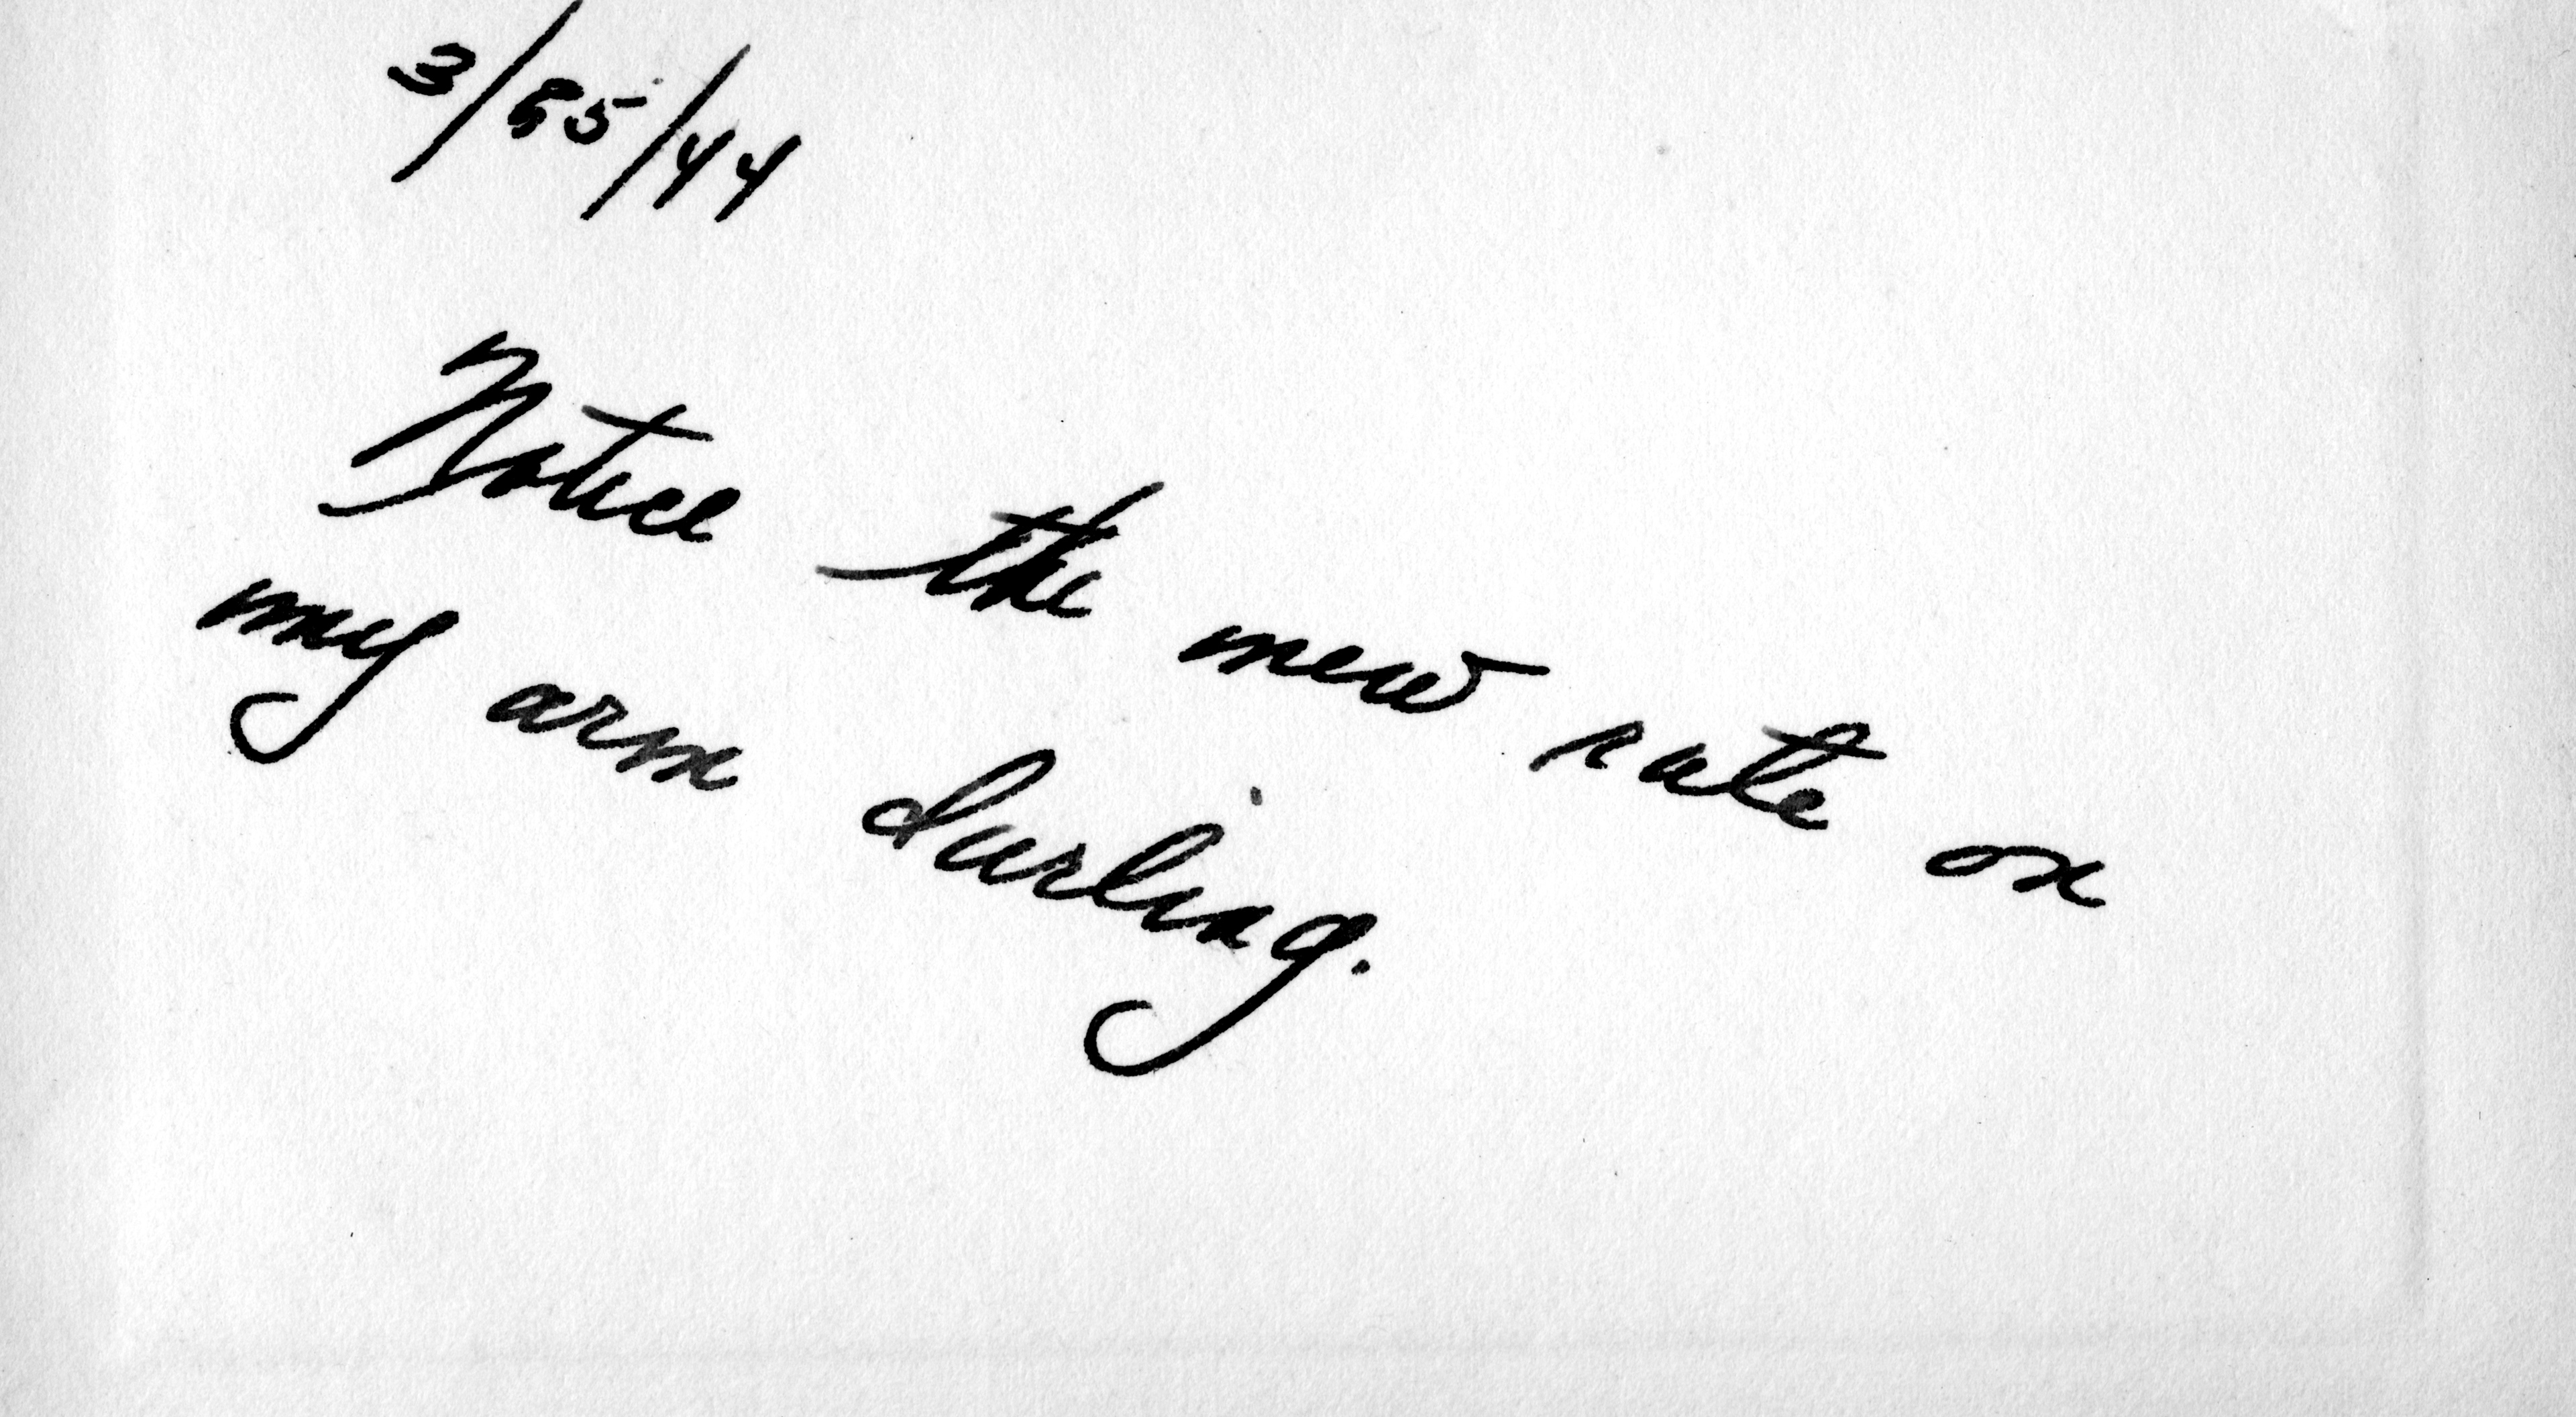 3/25/44
Notice the new rate on
my arm darling.